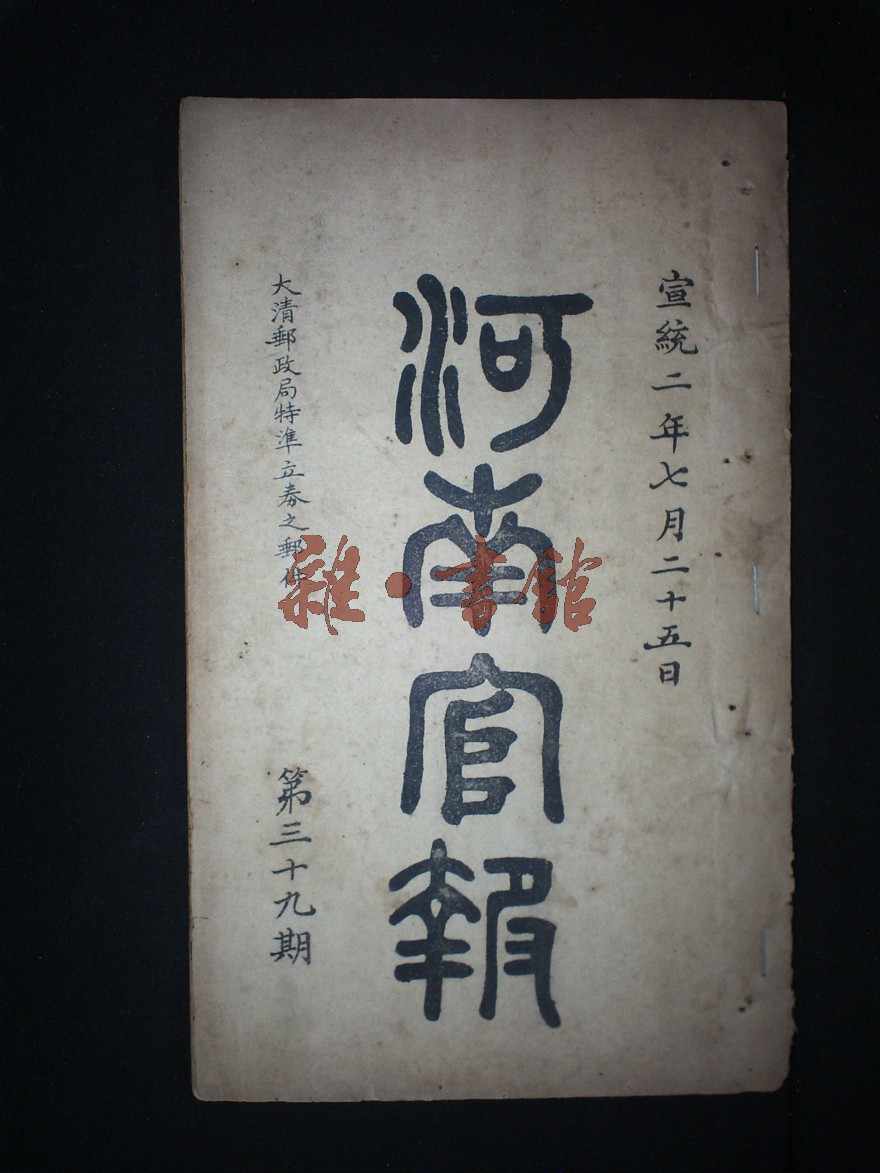 宣統二年七月二十五日
河南官報
大清郵政局特準立券之郵件
第三十九期
雜·書館